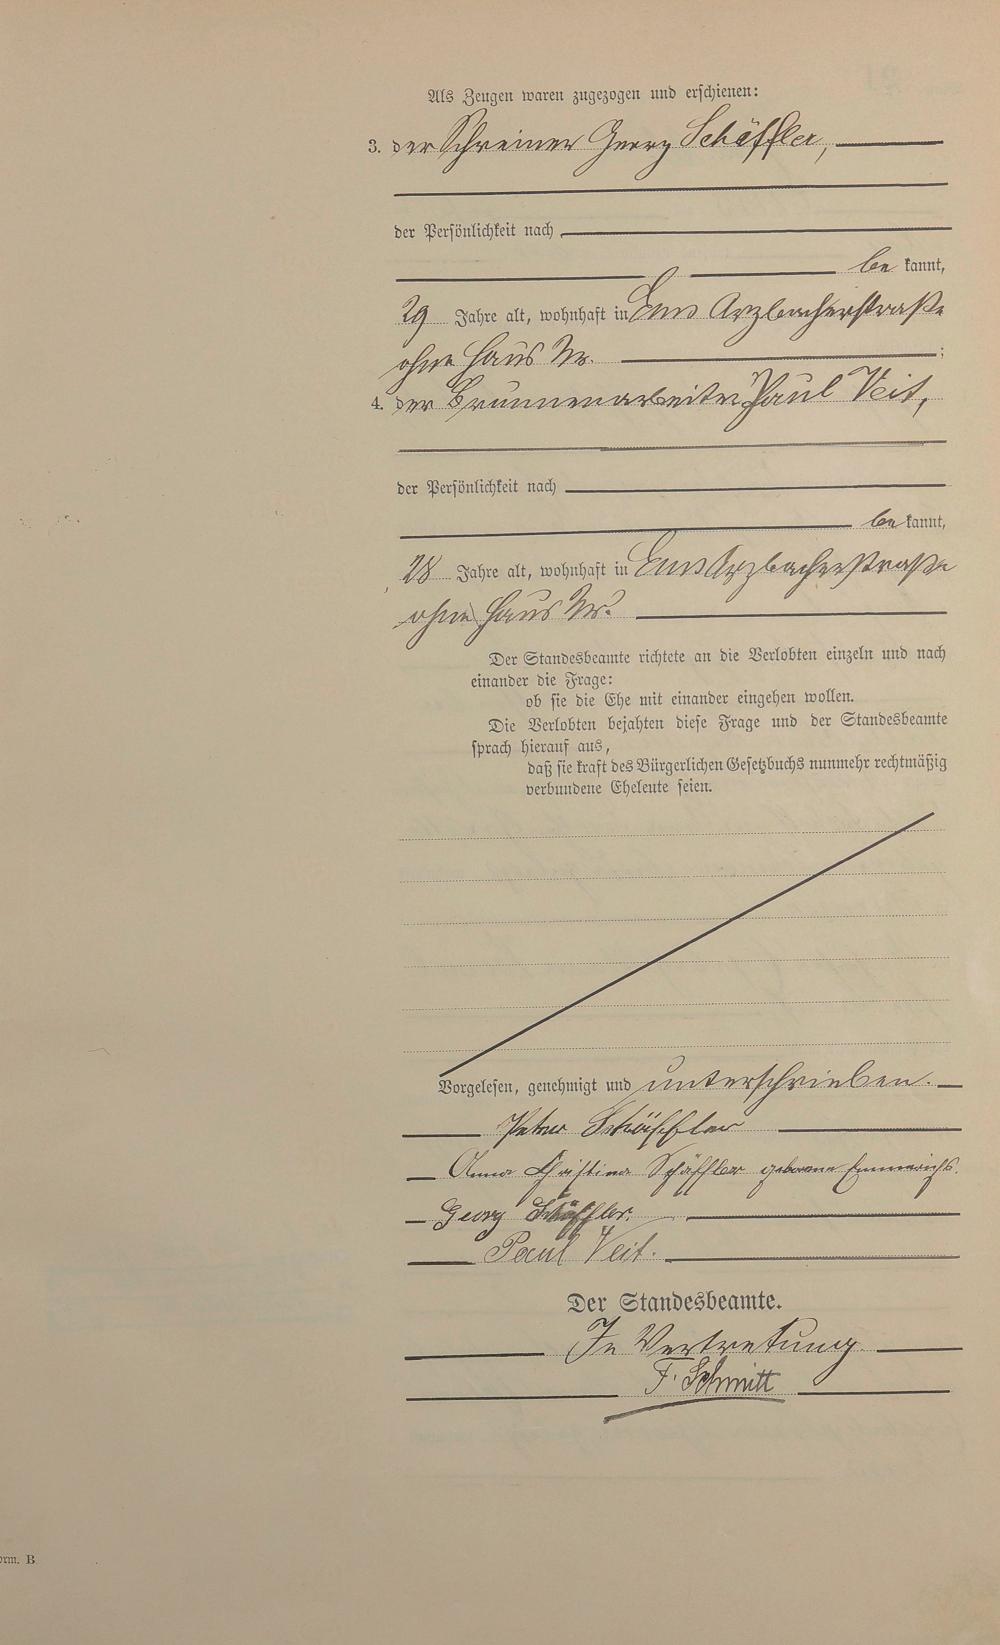 Als Zeugen waren zugezogen und erschienen:
3. der Schreiner Georg Schäffler,
der Persönlichkeit nach
be kannt,
29 Jahre alt, wohnhaft in Ems Arzbacherstraße
ohne Haus Nr. ;
4. der Brunnenarbeiter Paul Veit,
der Persönlichkeit nach
be kannt,
28 Jahre alt, wohnhaft in Ems Arzbacherstraße
ohne Haus Nr.
Der Standesbeamte richtete an die Verlobten einzeln und nach
einander die Frage:
ob sie die Ehe mit einander eingehen wollen.
Die Verlobten bejahten diese Frage und der Standesbeamte
sprach hierauf aus,
daß sie kraft des Bürgerlichen Gesetzbuchs nunmehr rechtmäßig
verbundene Eheleute seien.
Vorgelesen, genehmigt und unterschrieben.
Peter Schäffler
Anna Christina Schäffler geborene Emmerichs.
Georg Schäffler.
Paul Veit.
Der Standesbeamte.
In Vertretung
F. Schmitt
orm. B